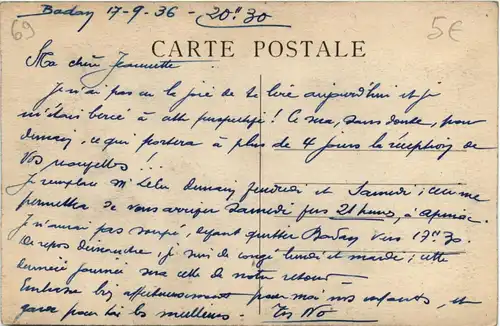 69
Badan 17-9-36 - 20h30
5€
CARTE POSTALE
Ma chère Jeannette
Je n'ai pas eu la joie de te lire aujourd'hui et je
m'étais bercé à cette perspective! Ce sera, sans doute, pour
demain, ce qui portera à plus de 4 jours la réception de
vos nouvelles!
Je remplace Mr demain Vendredi et Samedi;
permettra de vous arriver Samedi 21 heures,
Je n'aurai pas soupé, devant quitter Badan vers 17h30.
De repos dimanche, je suis de congé lundi et mardi; cette
dernière journée sera celle de notre retour
Embrasse bien affectueusement pour moi nos enfants, et
garde pour toi les meilleurs.